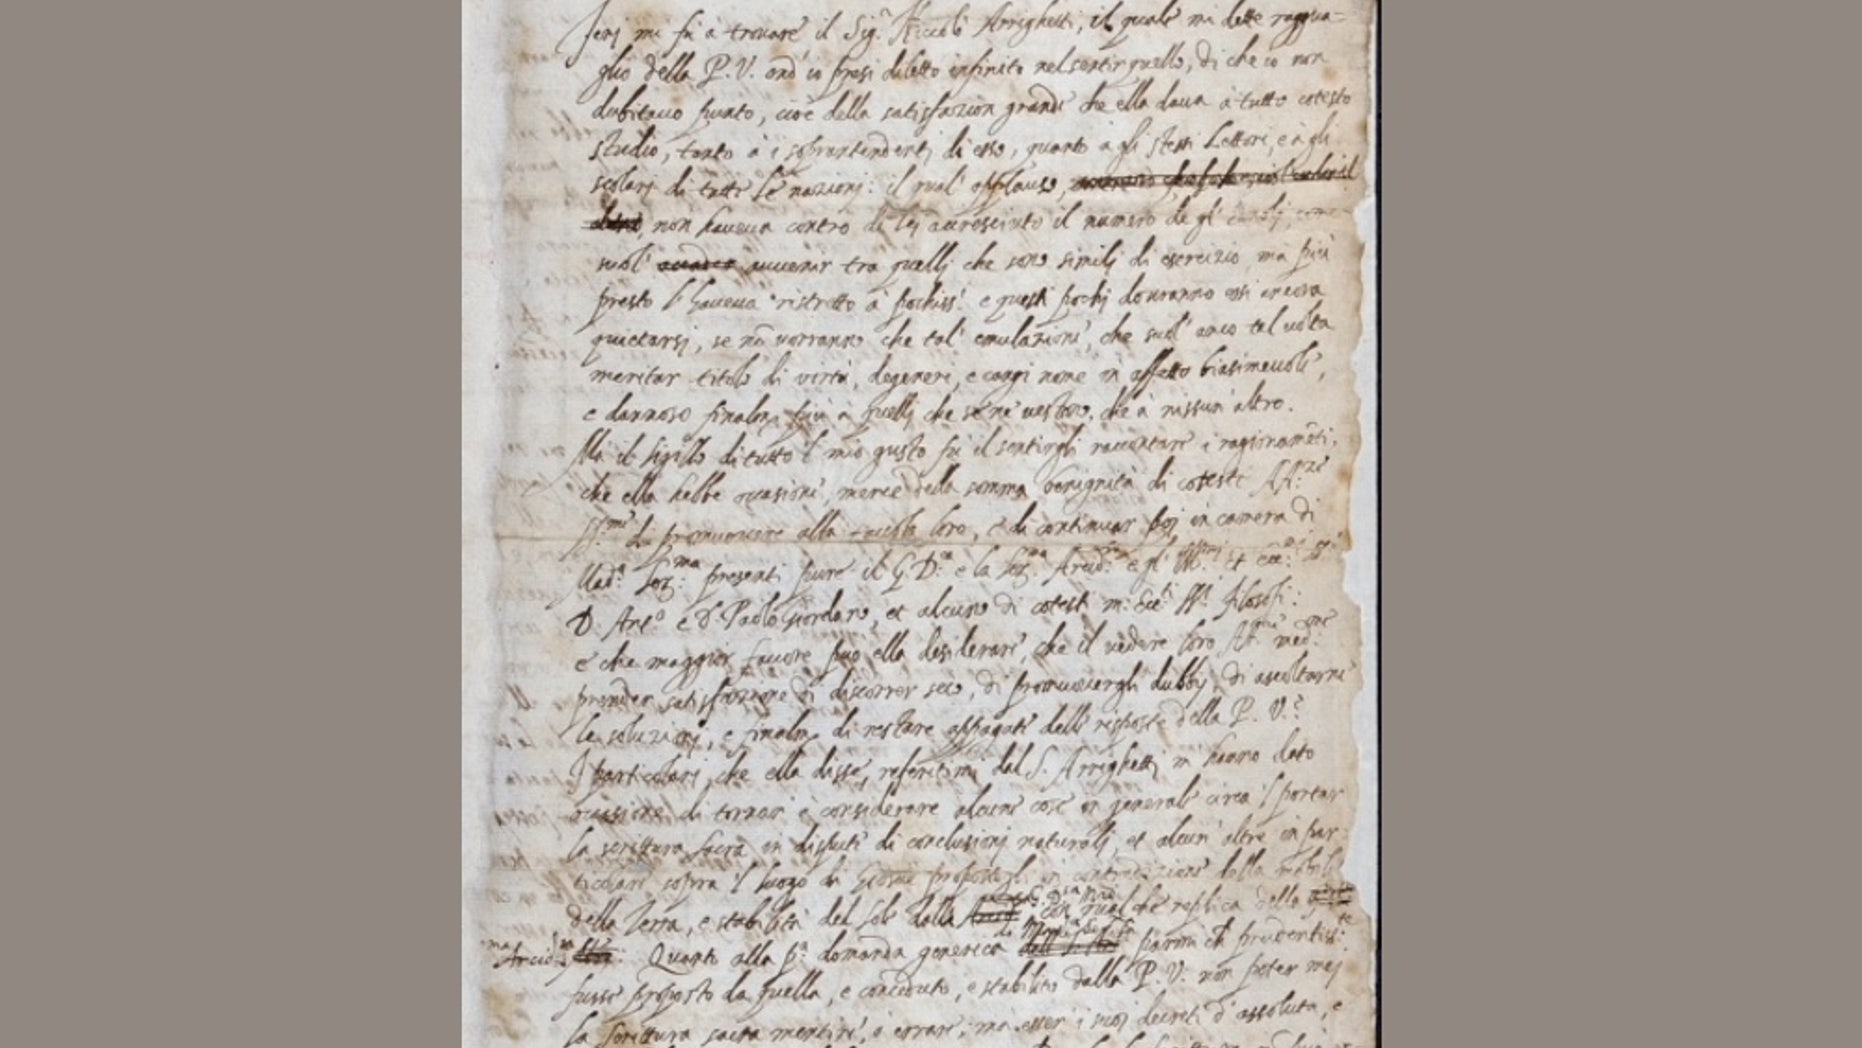 Ieri mi fu a trovare il Sig.r Niccolò Arrighetti, il quale mi dette raggua-
glio della P. V. ond' io presi diletto infinito nel sentir quello, di che io non
dubitavo punto, cioè della satisfazion grande che ella dava à tutto cotesto
studio, tanto à i soprantendenti di esso, quanto a gli stessi Lettori, e à gli
scolari di tutte le nazioni: il qual' applauso,
non haveva contro di lei accresciuto il numero de gl' emoli, come
suol' avvenir tra quelli che sono simili di esercizio, ma più
presto l' haveva ristretto à pochiss.i e questi pochi dovranno essi ancora
quietarsi, se nō vorranno che tal' emulazione, che suol' anco tal volta
meritar titolo di virtù, degeneri, e cangi nome in affetto biasimevole,
e dannoso finalm.e più à quelli che se ne vestono, che à nissun' altro.
Ma il sigillo di tutto 'l mio gusto fu il sentirgli raccontar i ragionamēti,
che ella hebbe occasione, mercè della somma benignità di coteste AA.ze
SS.me di promuovere alla tavola loro, e di continuar poi in camera di
Mad.a Ser.ma presenti pure il G. D.ca e la Ser.ma Arcid.sa e gl' Ill.mi et Ecc.mi SS.ri
D. Ant.o e D. Paolo Giordano, et alcuno di cotesti m. Ecc.ti SS.ri filosofi:
e che maggior favore può ella desiderare, che il vedere loro AA. med.me
prender satisfazione di discorrer seco, di promuovergli dubbij, di ascoltarne
le soluzioni, e finalm.e di restare appagate delle risposte della P. V.?
I particolari, che ella disse, referitimi dal S. Arrighetti, m' hanno dato
occasione di tornar à considerare alcune cose in generale circa 'l portar
la scrittura sacra in dispute di conclusioni naturali, et alcun' altre in par-
ticolare sopra 'l luogo di Giosuè propostogli in contradizione della mobilità
della Terra, e stabilità del Sole dalla G. D.sa Mad. con qualche replica della
Ser.ma Arcid.sa Quanto alla p.a domanda generica di Mad.a Ser.ma parmi che prudentiss.te
fusse proposto da quella, e conceduto, e stabilito dalla P. V. non poter mai
la scrittura sacra mentire, o errare; ma esser i suoi decreti d' assoluta, e